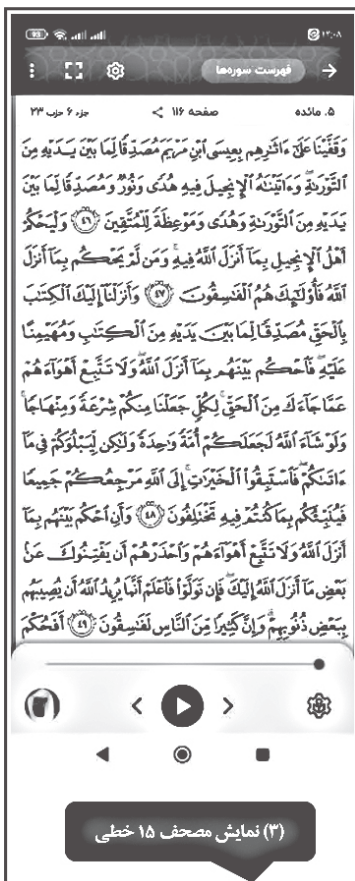 ۱۳:۰۸ 93
فهرست سوره‌ها
۵. مائده صفحه ۱۱۶ جزء ۶ حزب ۲۳
وَقَفَّيْنَا عَلَىٰ ءَاثَٰرِهِم بِعِيسَى ٱبْنِ مَرْيَمَ مُصَدِّقًا لِّمَا بَيْنَ يَدَيْهِ مِنَ
ٱلتَّوْرَىٰةِ وَءَاتَيْنَٰهُ ٱلْإِنجِيلَ فِيهِ هُدًى وَنُورٌ وَمُصَدِّقًا لِّمَا بَيْنَ
يَدَيْهِ مِنَ ٱلتَّوْرَىٰةِ وَهُدًى وَمَوْعِظَةً لِّلْمُتَّقِينَ ٤٦ وَلْيَحْكُمْ
أَهْلُ ٱلْإِنجِيلِ بِمَآ أَنزَلَ ٱللَّهُ فِيهِ ۚ وَمَن لَّمْ يَحْكُم بِمَآ أَنزَلَ
ٱللَّهُ فَأُو۟لَٰٓئِكَ هُمُ ٱلْفَٰسِقُونَ ٤٧ وَأَنزَلْنَآ إِلَيْكَ ٱلْكِتَٰبَ
بِٱلْحَقِّ مُصَدِّقًا لِّمَا بَيْنَ يَدَيْهِ مِنَ ٱلْكِتَٰبِ وَمُهَيْمِنًا
عَلَيْهِ ۖ فَٱحْكُم بَيْنَهُم بِمَآ أَنزَلَ ٱللَّهُ ۖ وَلَا تَتَّبِعْ أَهْوَآءَهُمْ
عَمَّا جَآءَكَ مِنَ ٱلْحَقِّ ۚ لِكُلٍّ جَعَلْنَا مِنكُمْ شِرْعَةً وَمِنْهَاجًا ۚ
وَلَوْ شَآءَ ٱللَّهُ لَجَعَلَكُمْ أُمَّةً وَٰحِدَةً وَلَٰكِن لِّيَبْلُوَكُمْ فِى مَآ
ءَاتَىٰكُمْ ۖ فَٱسْتَبِقُوا۟ ٱلْخَيْرَٰتِ ۚ إِلَى ٱللَّهِ مَرْجِعُكُمْ جَمِيعًا
فَيُنَبِّئُكُم بِمَا كُنتُمْ فِيهِ تَخْتَلِفُونَ ٤٨ وَأَنِ ٱحْكُم بَيْنَهُم بِمَآ
أَنزَلَ ٱللَّهُ وَلَا تَتَّبِعْ أَهْوَآءَهُمْ وَٱحْذَرْهُمْ أَن يَفْتِنُوكَ عَنۢ
بَعْضِ مَآ أَنزَلَ ٱللَّهُ إِلَيْكَ ۖ فَإِن تَوَلَّوْا۟ فَٱعْلَمْ أَنَّمَا يُرِيدُ ٱللَّهُ أَن يُصِيبَهُم
بِبَعْضِ ذُنُوبِهِمْ ۗ وَإِنَّ كَثِيرًا مِّنَ ٱلنَّاسِ لَفَٰسِقُونَ ٤٩ أَفَحُكْمَ
(۳) نمایش مصحف ۱۵ خطی